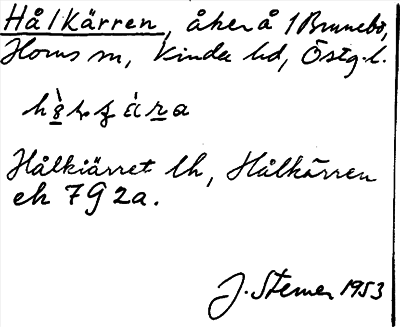 Hålkärren, åker å 1 Brunnebo,
Horns sn, Kinda hd, Östg. l.
Hålkiärret lh, Hålkärren
ek 7G 2a.
J. Sterner 1953